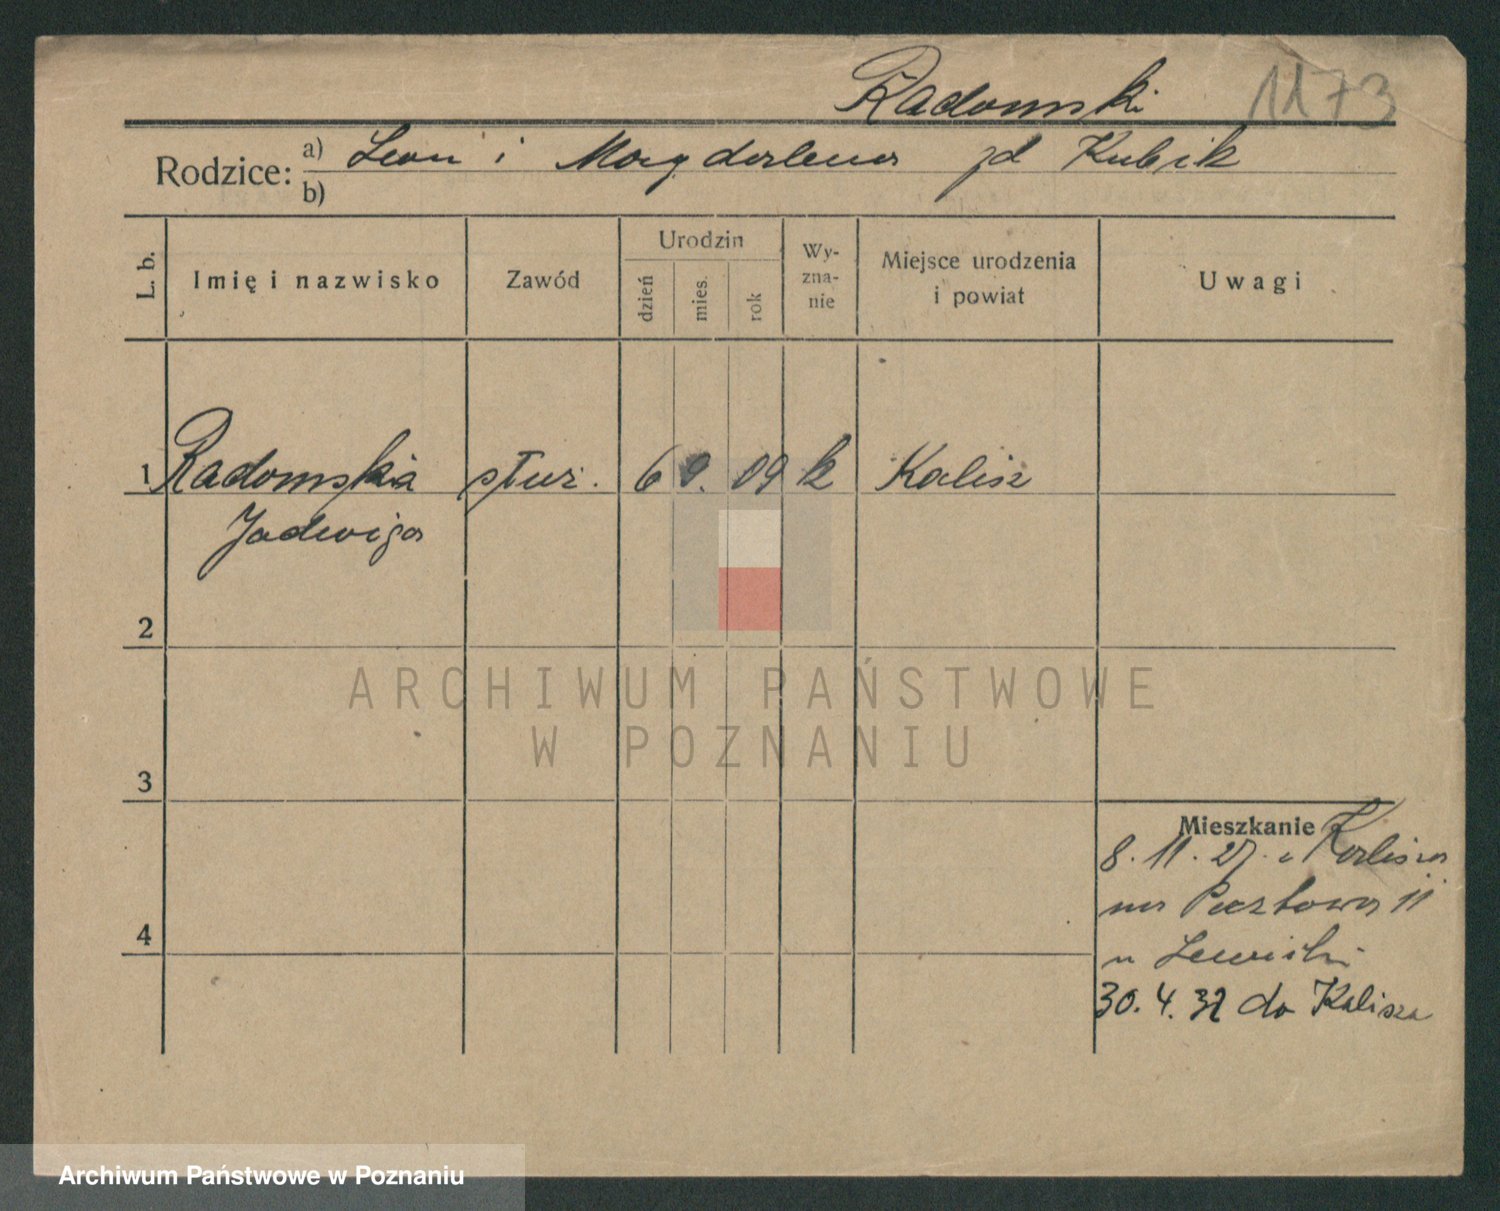 Radomski 1173
Rodzice: a) Leon i Magdalena zd Kubik
b)
L. b. Imię i nazwisko Zawód Urodzin dzień mies. rok Wyznanie Miejsce urodzenia i powiat Uwagi
1 Radomska służ. 6 9. 09 k Kalisz
Jadwiga
2
ARCHIWUM PAŃSTWOWE
W POZNANIU
3
Mieszkanie
8. 11. 27. z Kalisza
na Pocztowa 11
4
u
30. 4. 32 do Kalisza
Archiwum Państwowe w Poznaniu